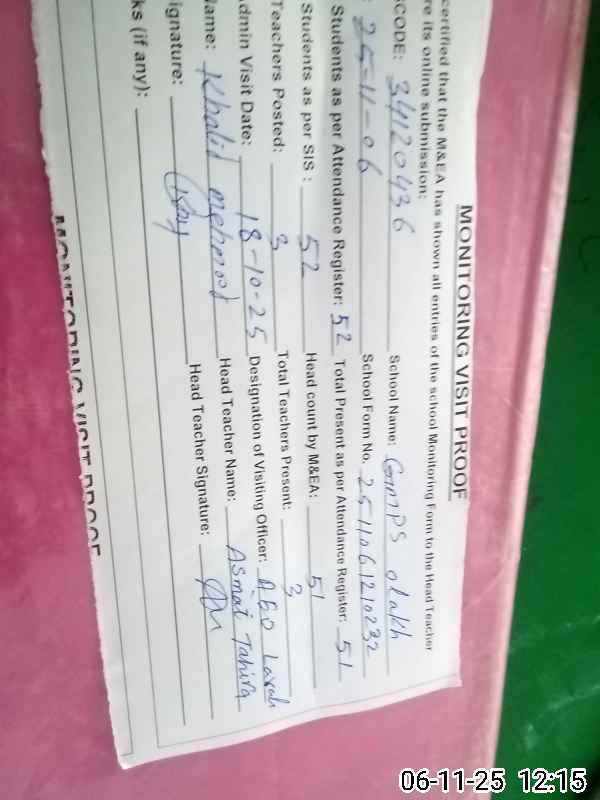 MONITORING VISIT PROOF
certified that the M&EA has shown all entries of the school Monitoring Form to the Head Teacher
re its online submission:
CODE: 34120436 School Name: GMPS olakh
: 25-11-06 School Form No. 2511061210232
Students as per Attendance Register: 52 Total Present as per Attendance Register: 51
Students as per SIS : 52 Head count by M&EA: 51
Teachers Posted: 3 Total Teachers Present: 3
dmin Visit Date: 18-10-25 Designation of Visiting Officer: AEO
ame: Khalid mehmood Head Teacher Name: Asmat Tahira
ignature: Head Teacher Signature:
ks (if any):
MONITORING VISIT PROOF
06-11-25 12:15